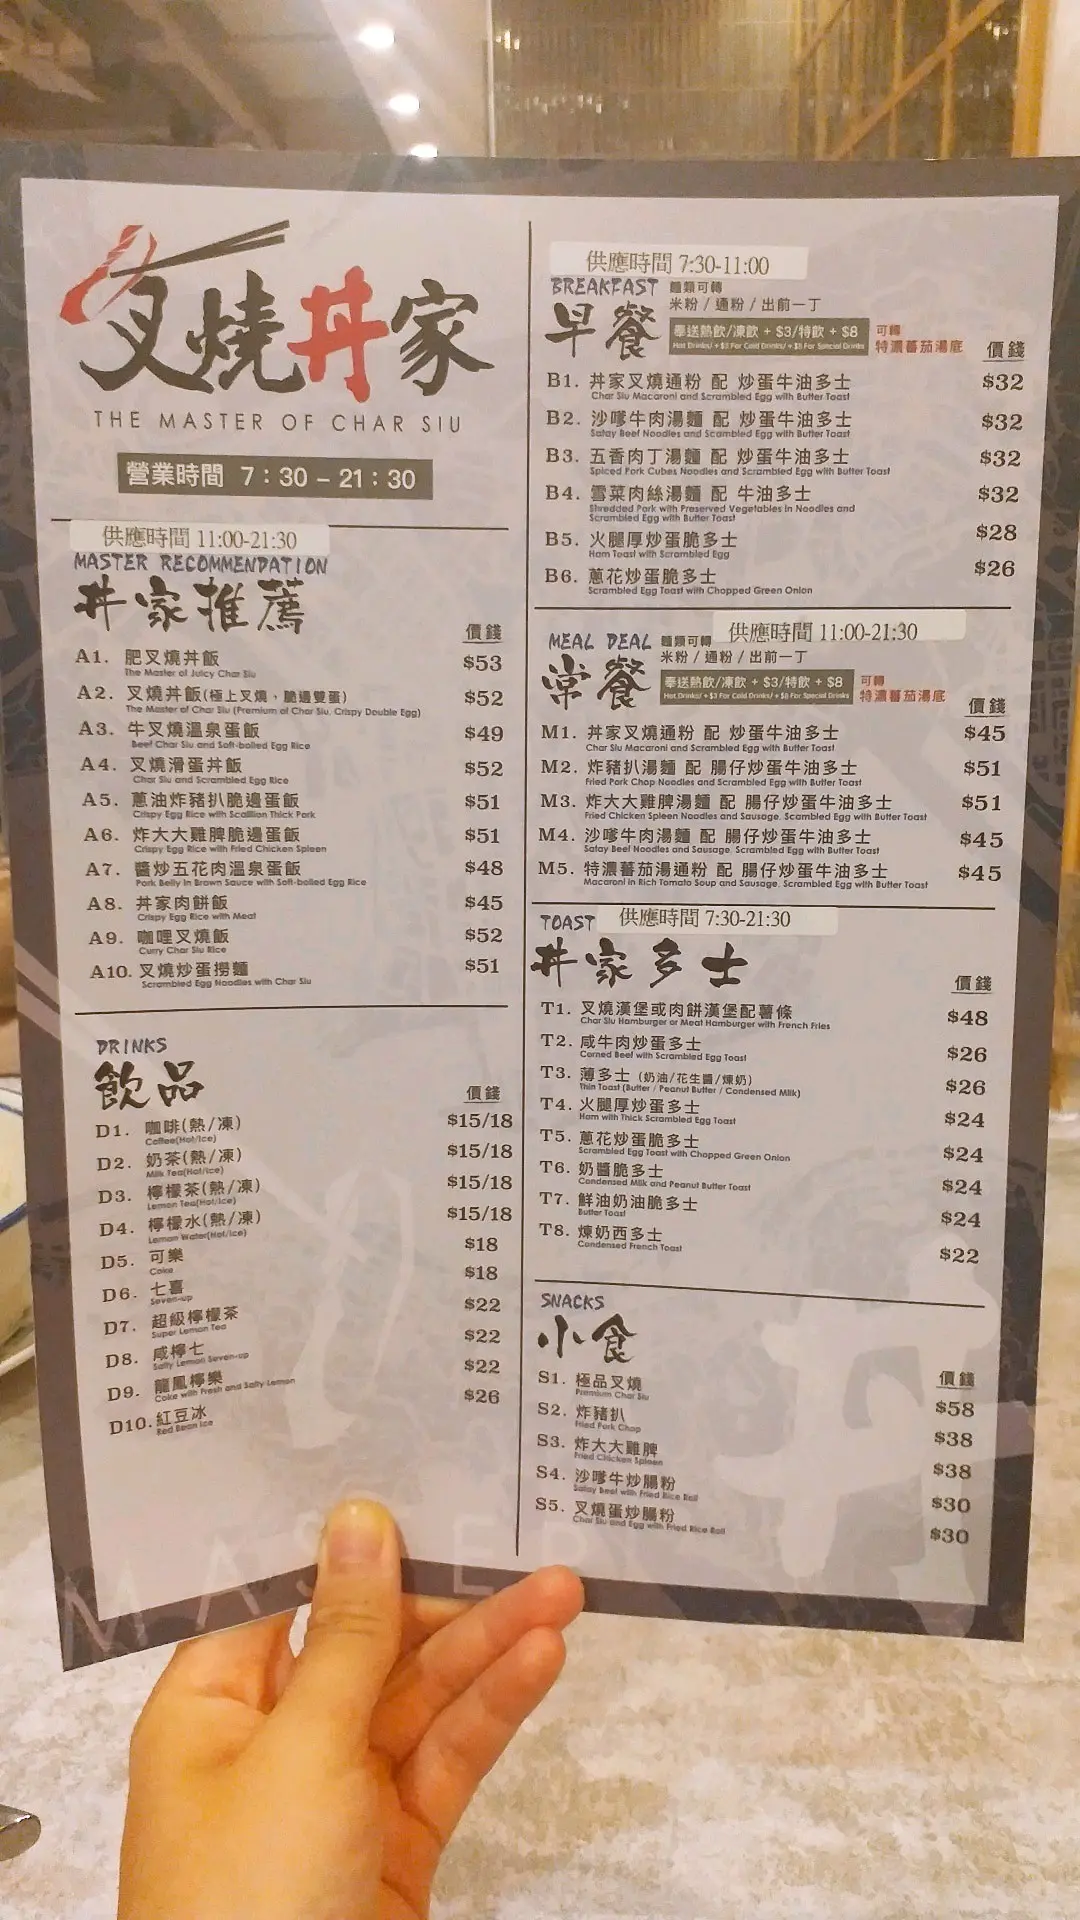 叉燒丼家
THE MASTER OF CHAR SIU
營業時間 7:30 – 21:30
供應時間 11:00-21:30
MASTER RECOMMENDATION
丼家推薦
價錢
A1. 肥叉燒丼飯 $53
The Master of Juicy Char Siu
A2. 叉燒丼飯(極上叉燒,脆邊雙蛋) $52
The Master of Char Siu (Premium of Char Siu, Crispy Double Egg)
A3. 牛叉燒溫泉蛋飯 $49
Beef Char Siu and Soft-boiled Egg Rice
A4. 叉燒滑蛋丼飯 $52
Char Siu and Scrambled Egg Rice
A5. 蔥油炸豬扒脆邊蛋飯 $51
Crispy Egg Rice with Scallion Thick Pork
A6. 炸大大雞脾脆邊蛋飯 $51
Crispy Egg Rice with Fried Chicken Spleen
A7. 醬炒五花肉溫泉蛋飯 $48
Pork Belly in Brown Sauce with Soft-boiled Egg Rice
A8. 丼家肉餅飯 $45
Crispy Egg Rice with Meat
A9. 咖哩叉燒飯 $52
Curry Char Siu Rice
A10. 叉燒炒蛋撈麵 $51
Scrambled Egg Noodles with Char Siu
DRINKS
飲品
價錢
D1. 咖啡(熱/凍) $15/18
Coffee(Hot/Ice)
D2. 奶茶(熱/凍) $15/18
Milk Tea(Hot/Ice)
D3. 檸檬茶(熱/凍) $15/18
Lemon Tea(Hot/Ice)
D4. 檸檬水(熱/凍) $15/18
Lemon Water(Hot/Ice)
D5. 可樂 $18
Coke
D6. 七喜 $18
Seven-up
D7. 超級檸檬茶 $22
Super Lemon Tea
D8. 咸檸七 $22
Salty Lemon Seven-up
D9. 龍鳳檸樂 $22
Coke with Fresh and Salty Lemon
D10. 紅豆冰 $26
Red Bean Ice
供應時間 7:30-11:00
BREAKFAST 麵類可轉
米粉 / 通粉 / 出前一丁
早餐
奉送熱飲/凍飲 + $3/特飲 + $8
Hot Drinks/ + $3 For Cold Drinks/ + $8 For Special Drinks
可轉
特濃蕃茄湯底
價錢
B1. 丼家叉燒通粉 配 炒蛋牛油多士 $32
Char Siu Macaroni and Scrambled Egg with Butter Toast
B2. 沙嗲牛肉湯麵 配 炒蛋牛油多士 $32
Satay Beef Noodles and Scambled Egg with Butter Toast
B3. 五香肉丁湯麵 配 炒蛋牛油多士 $32
Spiced Pork Cubes Noodles and Scrambled Egg with Butter Toast
B4. 雪菜肉絲湯麵 配 牛油多士 $32
Shredded Pork with Preserved Vegetables in Noodles and
Scrambled Egg with Butter Toast
B5. 火腿厚炒蛋脆多士 $28
Ham Toast with Scrambled Egg
B6. 蔥花炒蛋脆多士 $26
Scrambled Egg Toast with Chopped Green Onion
MEAL DEAL 麵類可轉 供應時間 11:00-21:30
米粉 / 通粉 / 出前一丁
常餐
奉送熱飲/凍飲 + $3/特飲 + $8
Hot Drinks/ + $3 For Cold Drinks/ + $8 For Special Drinks
可轉
特濃蕃茄湯底
價錢
M1. 丼家叉燒通粉 配 炒蛋牛油多士 $45
Char Siu Macaroni and Scrambled Egg with Butter Toast
M2. 炸豬扒湯麵 配 腸仔炒蛋牛油多士 $51
Fried Pork Chop Noodles and Scrambled Egg with Butter Toast
M3. 炸大大雞脾湯麵 配 腸仔炒蛋牛油多士 $51
Fried Chicken Spleen Noodles and Sausage, Scambled Egg with Butter Toast
M4. 沙嗲牛肉湯麵 配 腸仔炒蛋牛油多士 $45
Satay Beef Noodles and Sausage, Scrambled Egg with Butter Toast
M5. 特濃蕃茄湯通粉 配 腸仔炒蛋牛油多士 $45
Macaroni in Rich Tomato Soup and Sausage, Scrambled Egg with Butter Toast
TOAST 供應時間 7:30-21:30
丼家多士
價錢
T1. 叉燒漢堡或肉餅漢堡配薯條 $48
Char Siu Hamburger or Meat Hamburger with French Fries
T2. 咸牛肉炒蛋多士 $26
Corned Beef with Scrambled Egg Toast
T3. 薄多士 (奶油/花生醬/煉奶) $26
Thin Toast (Butter / Peanut Butter / Condensed Milk)
T4. 火腿厚炒蛋多士 $24
Ham with Thick Scrambled Egg Toast
T5. 蔥花炒蛋脆多士 $24
Scrambled Egg Toast with Chopped Green Onion
T6. 奶醬脆多士 $24
Condensed Milk and Peanut Butter Toast
T7. 鮮油奶油脆多士 $24
Butter Toast
T8. 煉奶西多士 $22
Condensed French Toast
SNACKS
小食
價錢
S1. 極品叉燒 $58
Premium Char Siu
S2. 炸豬扒 $38
Fried Pork Chop
S3. 炸大大雞脾 $38
Fried Chicken Spleen
S4. 沙嗲牛炒腸粉 $30
Satay Beef with Fried Rice Roll
S5. 叉燒蛋炒腸粉 $30
Char Siu and Egg with Fried Rice Roll
MASTER